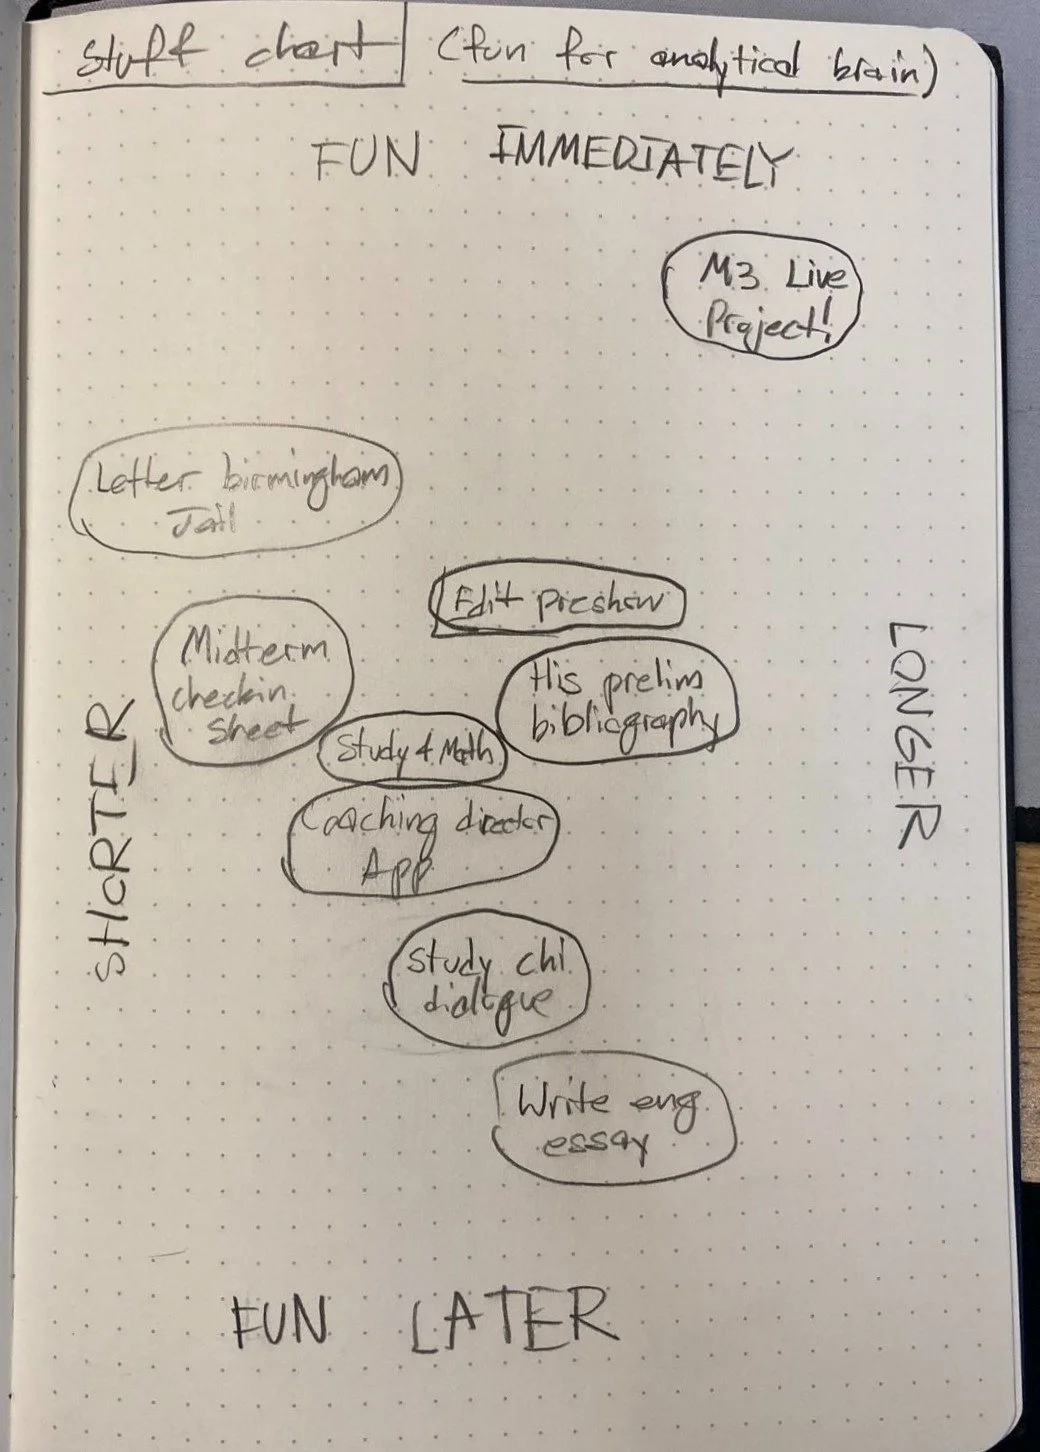 Stuff chart (fun for analytical brain)
FUN IMMEDIATELY
M3 Live
Project!
Letter birmingham
Jail
Edit preshow
Midterm
checkin
sheet
His prelim
bibliography
LONGER
SHORTER
Study 4 Math
Coaching director
App
Study chi
dialogue
Write eng
essay
FUN LATER